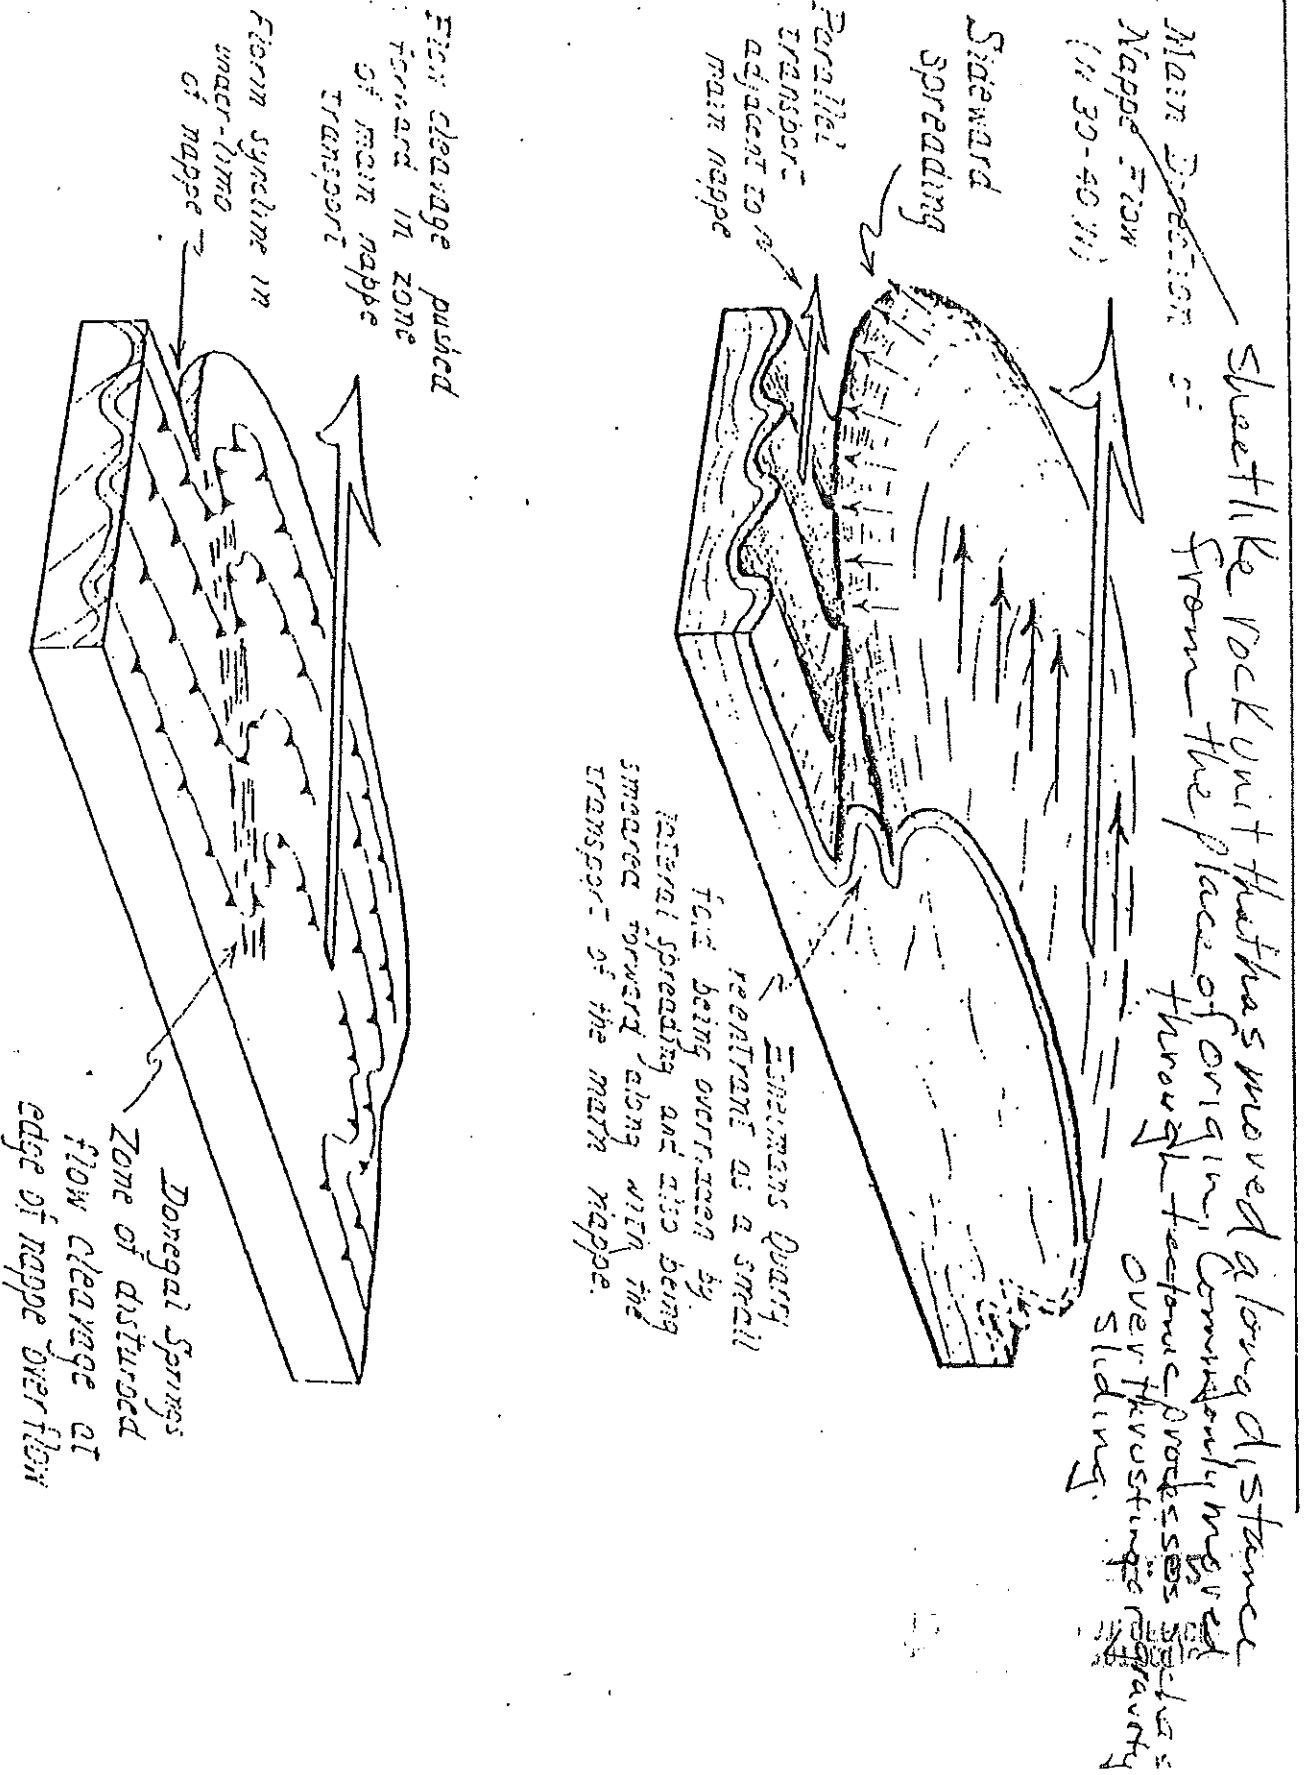 sheetlike rock unit that has moved a long distance
from the place of origin, Commonly moved
through tectonic processes such as
over thrusting or gravity
sliding.
Main Direction of
Nappe Flow
(N 30-40 W)
Sideward
Spreading
Parallel
transport
adjacent to
main nappe
Quarry
reentrant as a small
fold being overridden by
lateral spreading and also being
smeared forward along with the
transport of the main nappe.
Flow cleavage pushed
forward in zone
of main nappe
transport
syncline in
under-limb
of nappe
Donegal Springs
Zone of disturbed
flow cleavage at
edge of nappe overflow